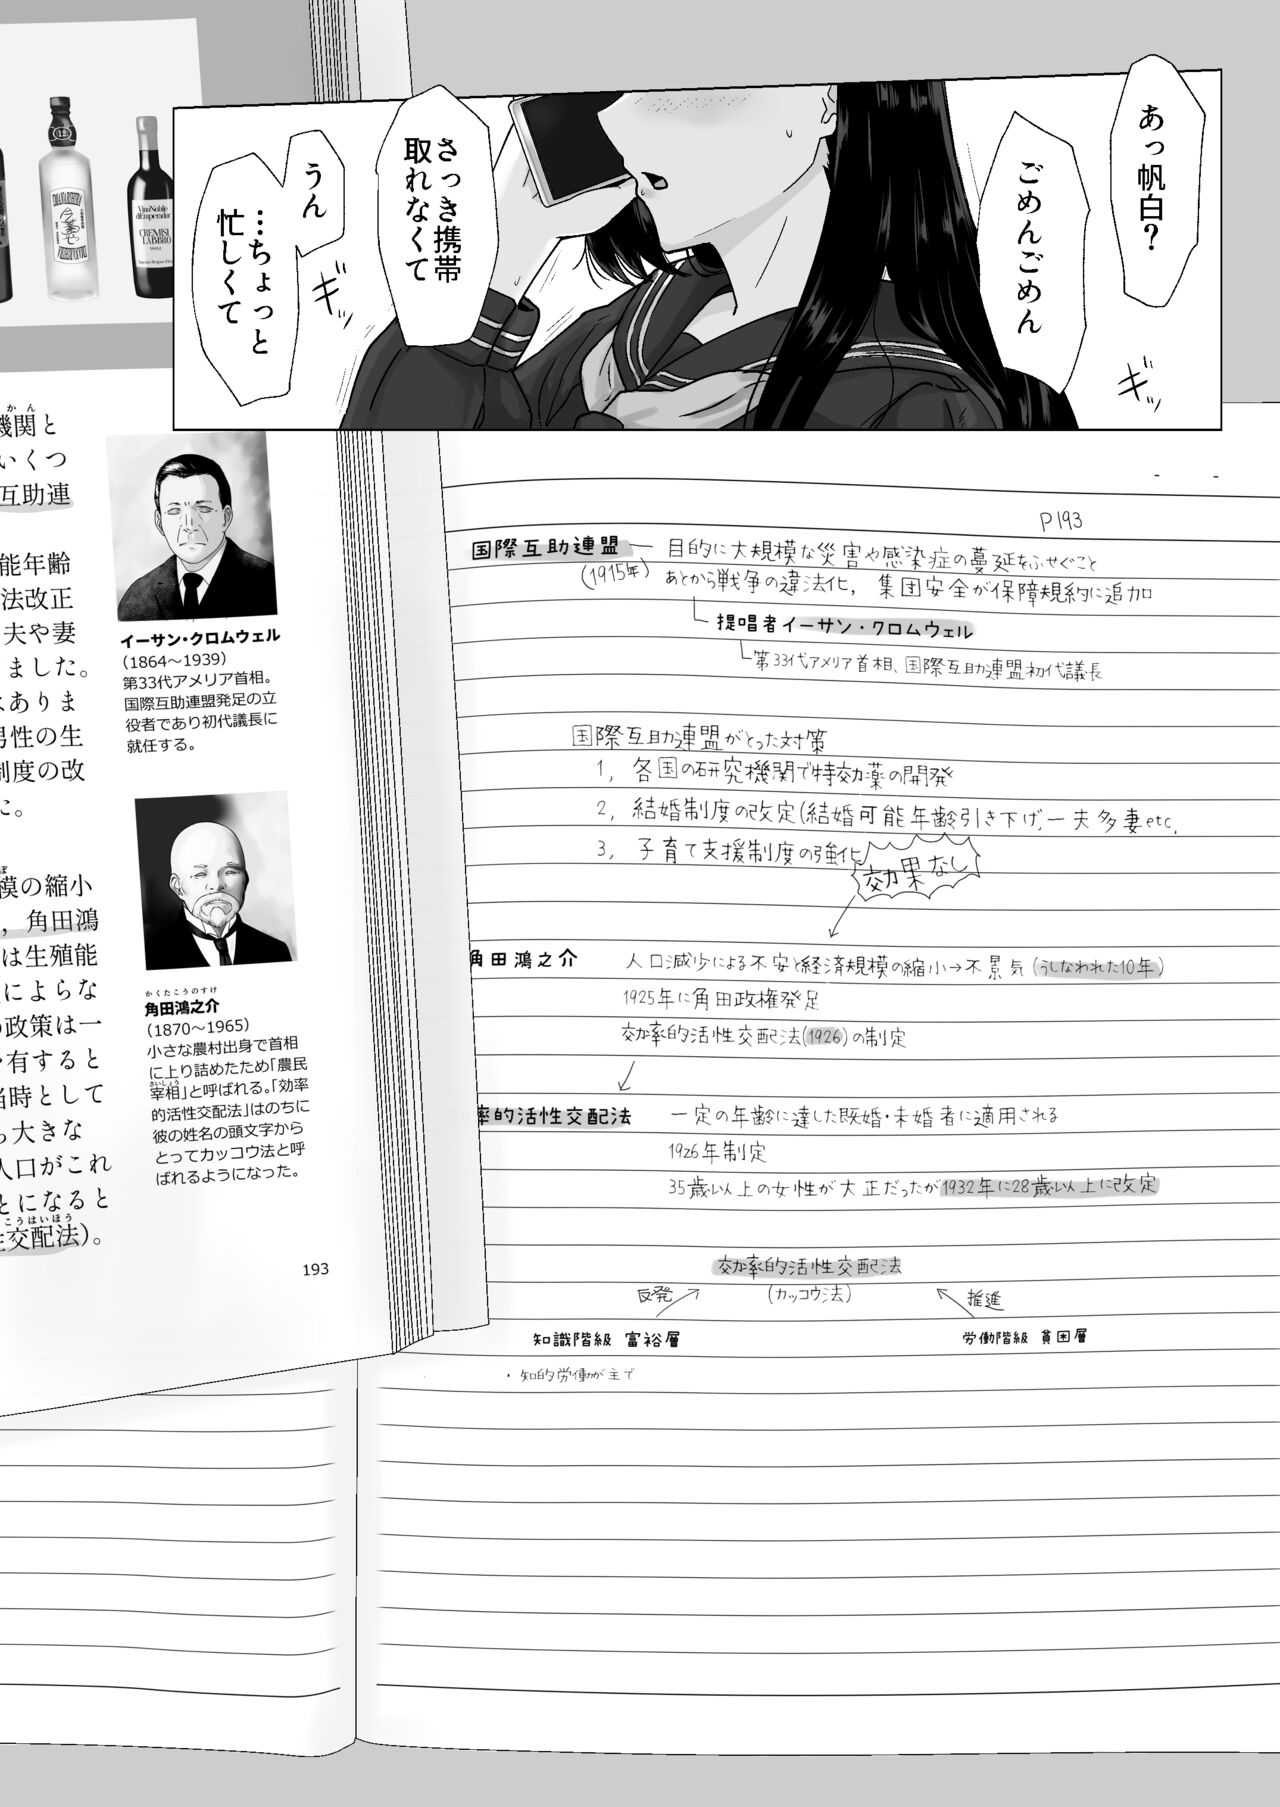 あっ帆白?
ごめんごめん
さっき携帯
取れなくて
うん
…ちょっと
忙しくて
ギッ
ギッ
12
VinoNobile
dEmperador
CREMISI
LABBRO
かん
機関と
いくつ
互助連
能年齢
法改正
夫や妻
きました。
はありま
男性の生
制度の改
た。
模の縮小
，角田鴻
は生殖能
によらな
の政策は一
有すると
当時として
大きな
人口がこれ
とになると
こうはいほう
性交配法)。
イーサン・クロムウェル
(1864～1939)
第33代アメリア首相。
国際互助連盟発足の立
役者であり初代議長に
就任する。
かくたこうのすけ
角田鴻之介
(1870～1965)
小さな農村出身で首相
に上り詰めたため「農民
さいしょう
宰相」と呼ばれる。「効率
的活性交配法」はのちに
彼の姓名の頭文字から
とってカッコウ法と呼
ばれるようになった。
193
P193
国際互助連盟 ― 目的に大規模な災害や感染症の蔓延をふせぐこと
(1915年) あとから戦争の違法化, 集団安全が保障規約に追加
提唱者イーサン・クロムウェル
第33代アメリア首相、国際互助連盟初代議長
国際互助連盟がとった対策
1, 各国の研究機関で特効薬の開発
2, 結婚制度の改定(結婚可能年齢引き下げ,一夫多妻etc,
3, 子育て支援制度の強化
効果なし
角田鴻之介 人口減少による不安と経済規模の縮小→不景気(うしなわれた10年)
1925年に角田政権発足
効率的活性交配法(1926)の制定
効率的活性交配法 一定の年齢に達した既婚・未婚者に適用される
1926年制定
35歳以上の女性が大正だったが1932年に28歳以上に改定
効率的活性交配法
(カッコウ法)
反発
推進
知識階級 富裕層
労働階級 貧困層
・知的労働が主で